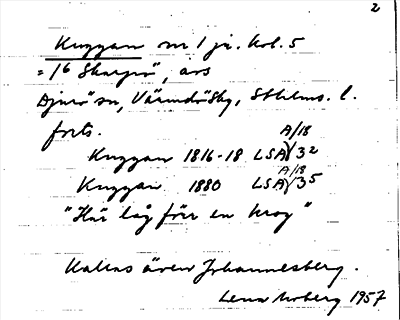 2
Kuggan nr 1 jr. kol. 5
= 1/6 Skarpö, örs
Djurö sn, Värmdö Sbg, Sthlms. l.
forts.
A/18
Kuggan 1816-18 LSA γ 32
A/18
Kuggan 1880 LSA γ 35
"Här låg förr en krog"
Kallas även Johannesberg.
Lena Moberg 1957